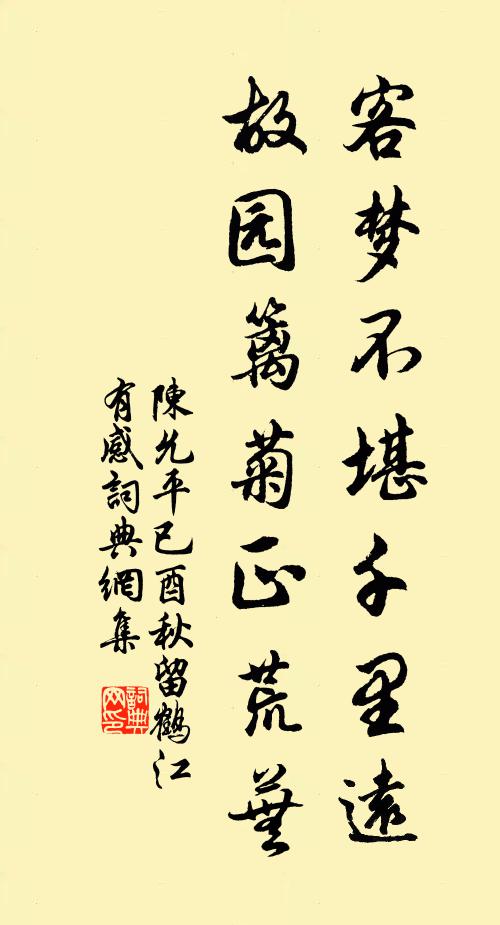 客梦不堪千里遠
故园篱菊正荒蕪
陳允平己酉秋留鶴江
有感詞典網集
詞典网印